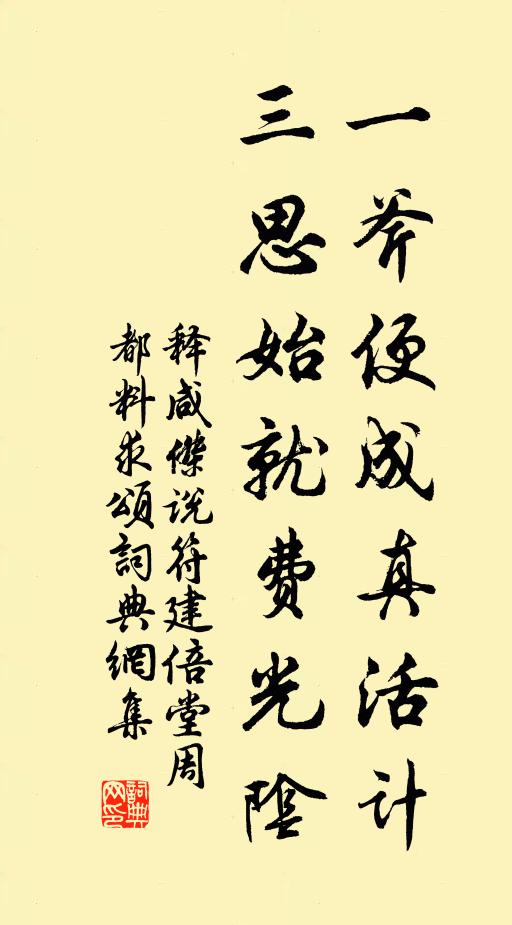 一斧便成真活計
三思始就費光陰
释咸傑说符建倍堂周
都料求頌詞典網集
詞典
网印